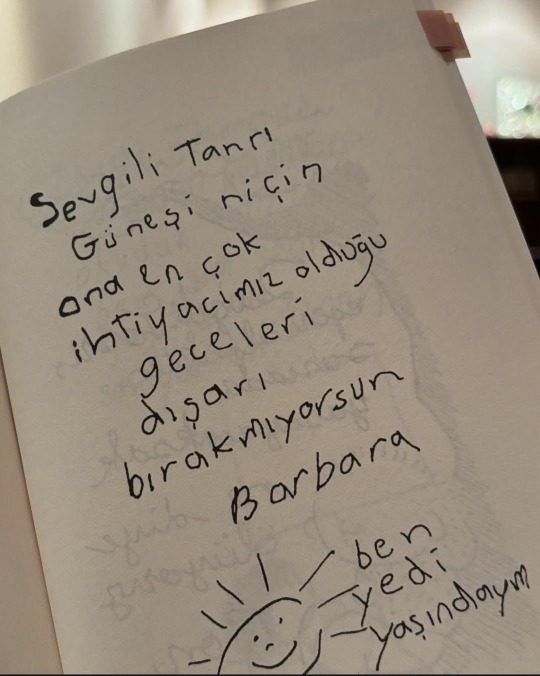 Sevgili Tanrı
Güneşi niçin
ona en çok
ihtiyacımız olduğu
geceleri
dışarı
bırakmıyorsun
Barbara
ben
yedi
yaşındayım